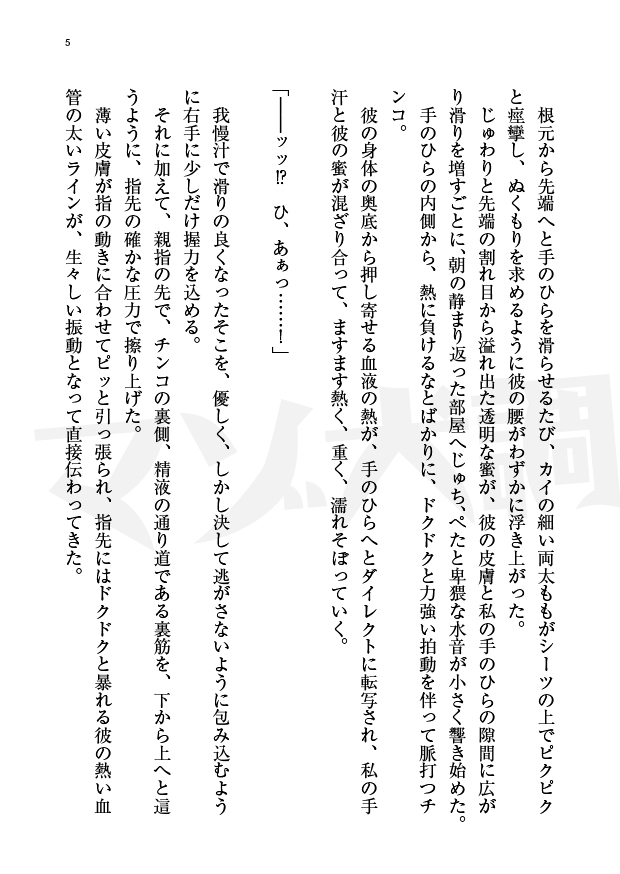 5
根元から先端へと手のひらを滑らせるたび、カイの細い両太ももがシーツの上でピクピク
と痙攣し、ぬくもりを求めるように彼の腰がわずかに浮き上がった。
じゅわりと先端の割れ目から溢れ出た透明な蜜が、彼の皮膚と私の手のひらの隙間に広が
り滑りを増すごとに、朝の静まり返った部屋へじゅち、ぺたと卑猥な水音が小さく響き始めた。
手のひらの内側から、熱に負けるなとばかりに、ドクドクと力強い拍動を伴って脈打つチ
ンコ。
彼の身体の奥底から押し寄せる血液の熱が、手のひらへとダイレクトに転写され、私の手
汗と彼の蜜が混ざり合って、ますます熱く、重く、濡れそぼっていく。
「――ッッ!? ひ、あぁっ……！」
我慢汁で滑りの良くなったそこを、優しく、しかし決して逃がさないように包み込むよう
に右手に少しだけ握力を込める。
それに加えて、親指の先で、チンコの裏側、精液の通り道である裏筋を、下から上へと這
うように、指先の確かな圧力で擦り上げた。
薄い皮膚が指の動きに合わせてピッと引っ張られ、指先にはドクドクと暴れる彼の熱い血
管の太いラインが、生々しい振動となって直接伝わってきた。
マゾ犬調